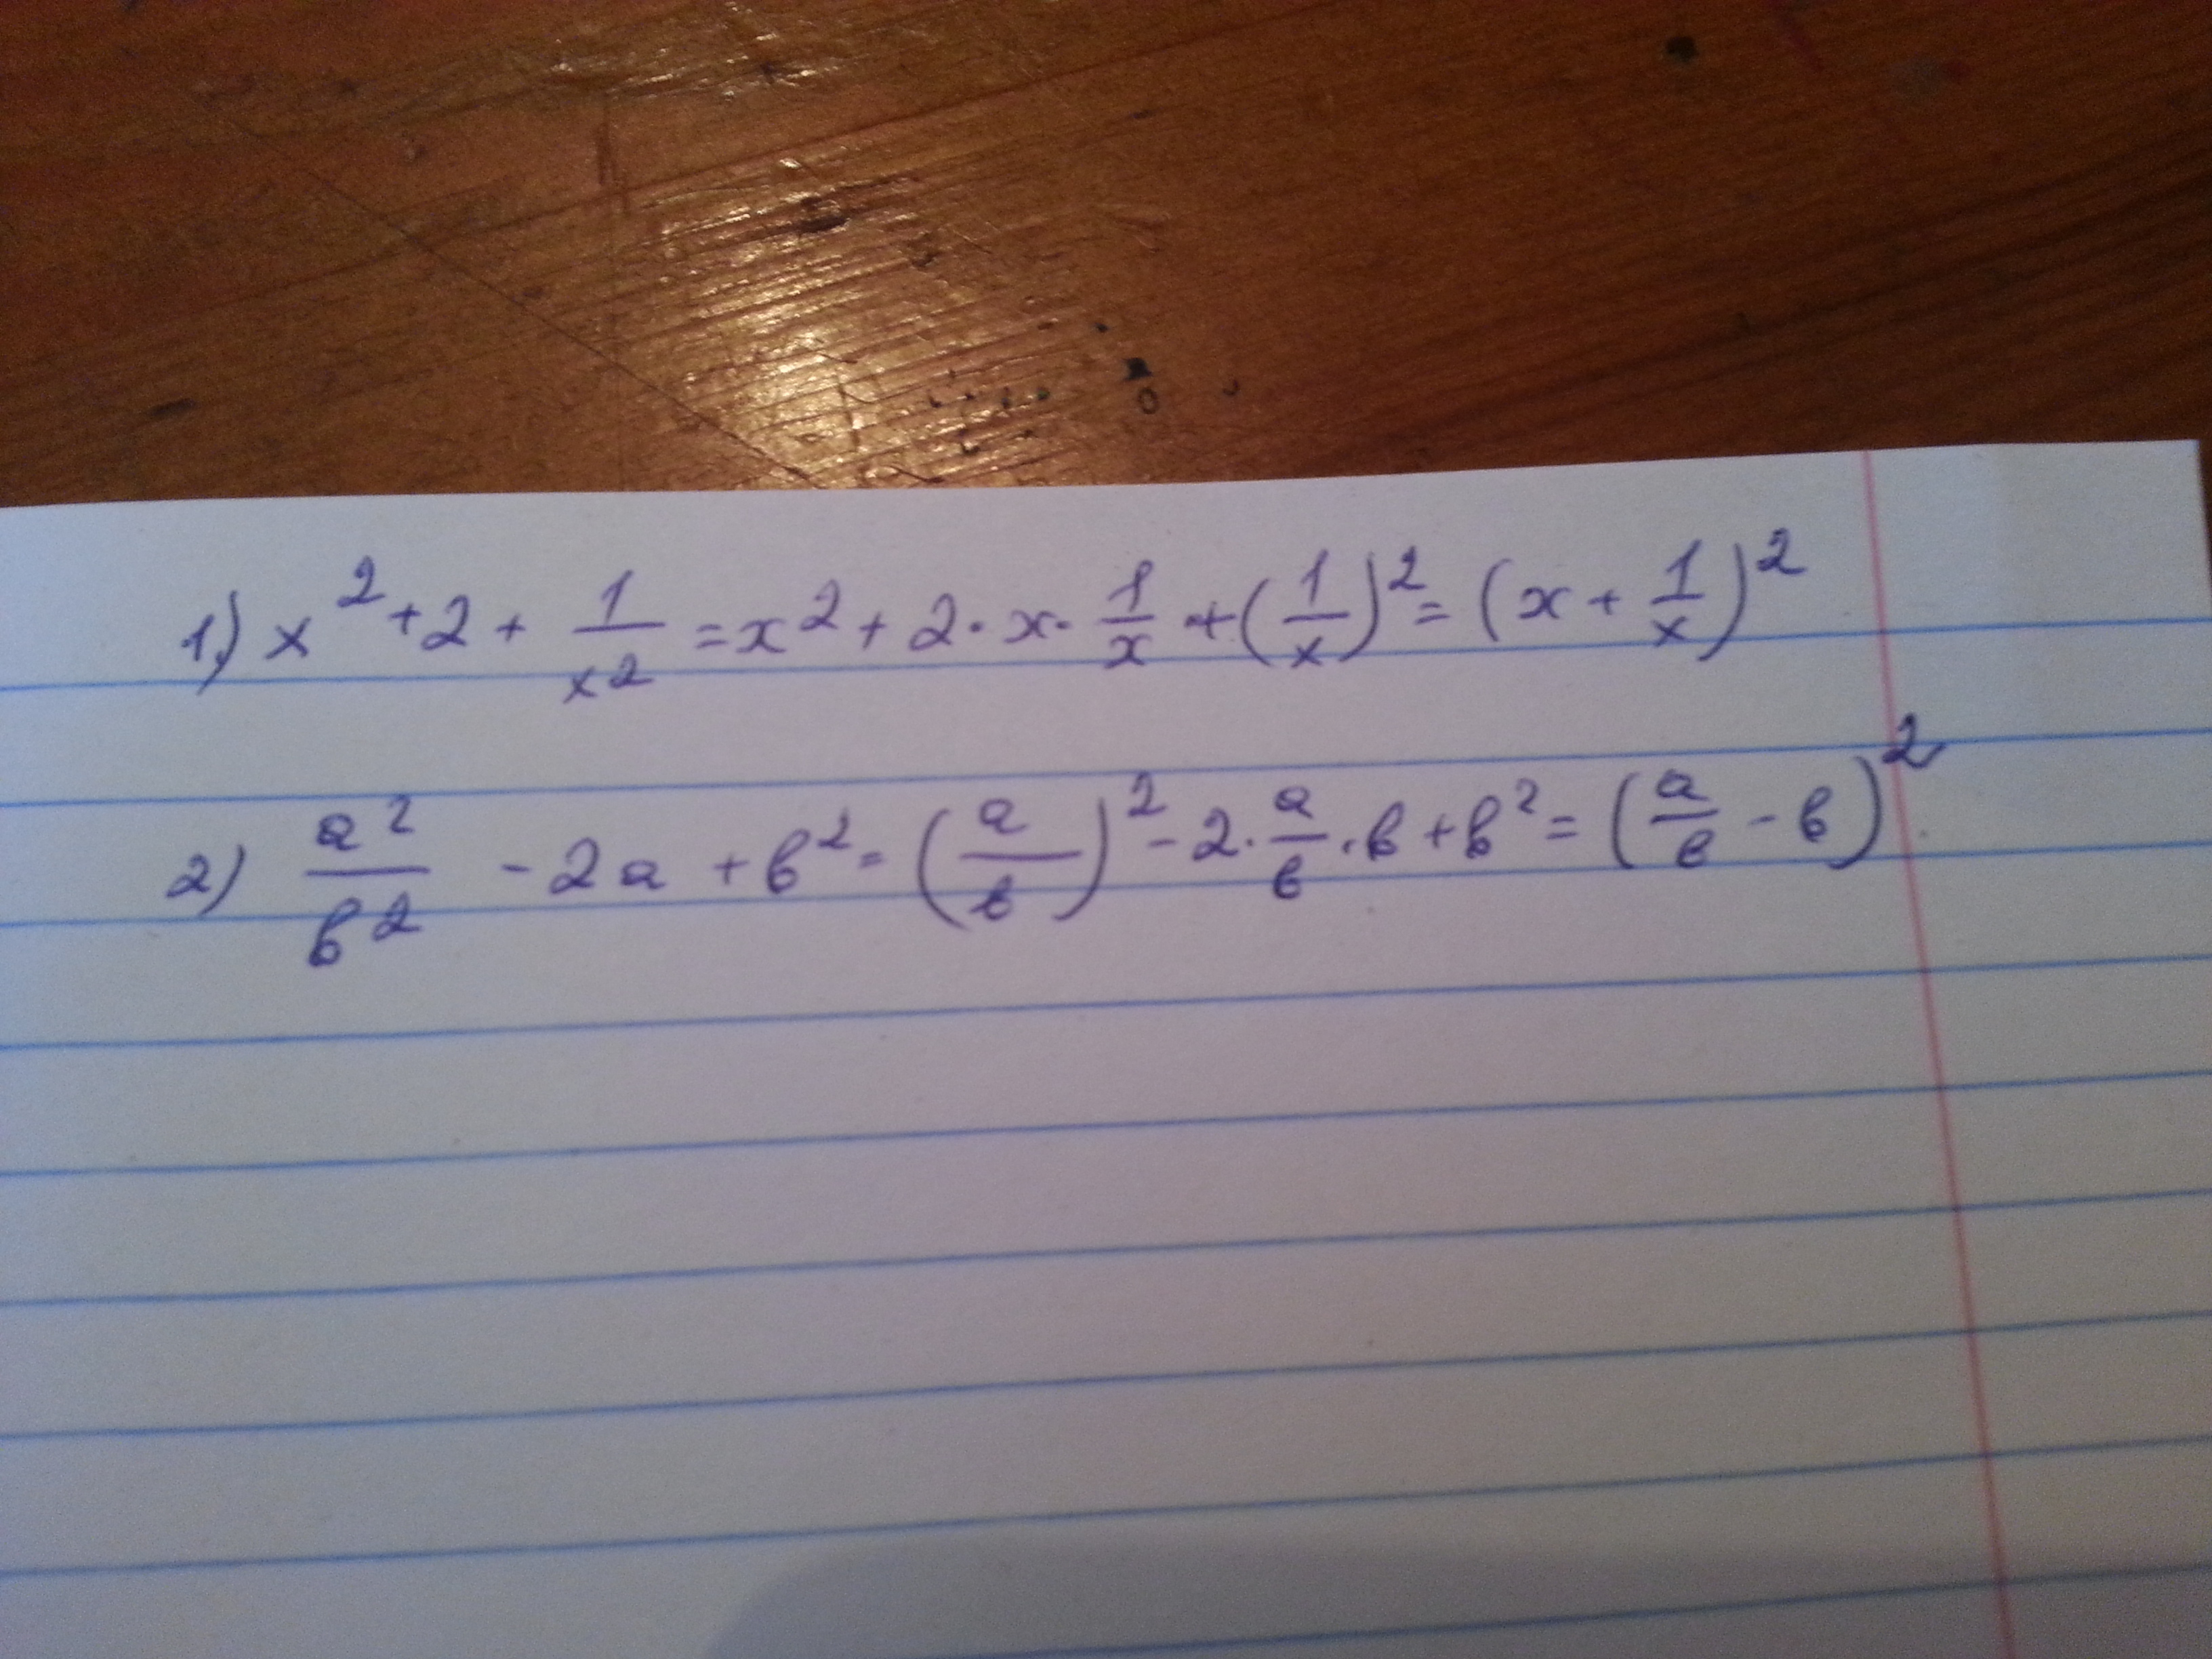 1) x² + 2 + 1/x² = x² + 2·x·1/x + (1/x)² = (x + 1/x)²
2) a²/в² - 2a + в² = (a/в)² - 2·a/в·в + в² = (a/в - в)²